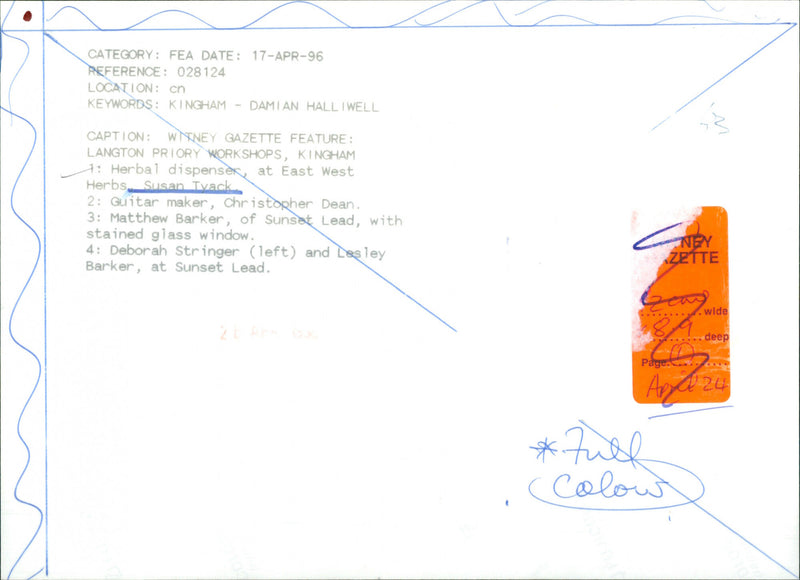 CATEGORY: FEA DATE: 17-APR-96
REFERENCE: 028124
LOCATION: cn
KEYWORDS: KINGHAM - DAMIAN HALLIWELL
CAPTION: WITNEY GAZETTE FEATURE:
LANGTON PRIORY WORKSHOPS, KINGHAM
1: Herbal dispenser, at East West
Herbs, Susan Tyack.
2: Guitar maker, Christopher Dean.
3: Matthew Barker, of Sunset Lead, with
stained glass window.
4: Deborah Stringer (left) and Lesley
Barker, at Sunset Lead.
NEY
ZETTE
wide
8.9 deep
Page 1
April 24
*Full
Colour